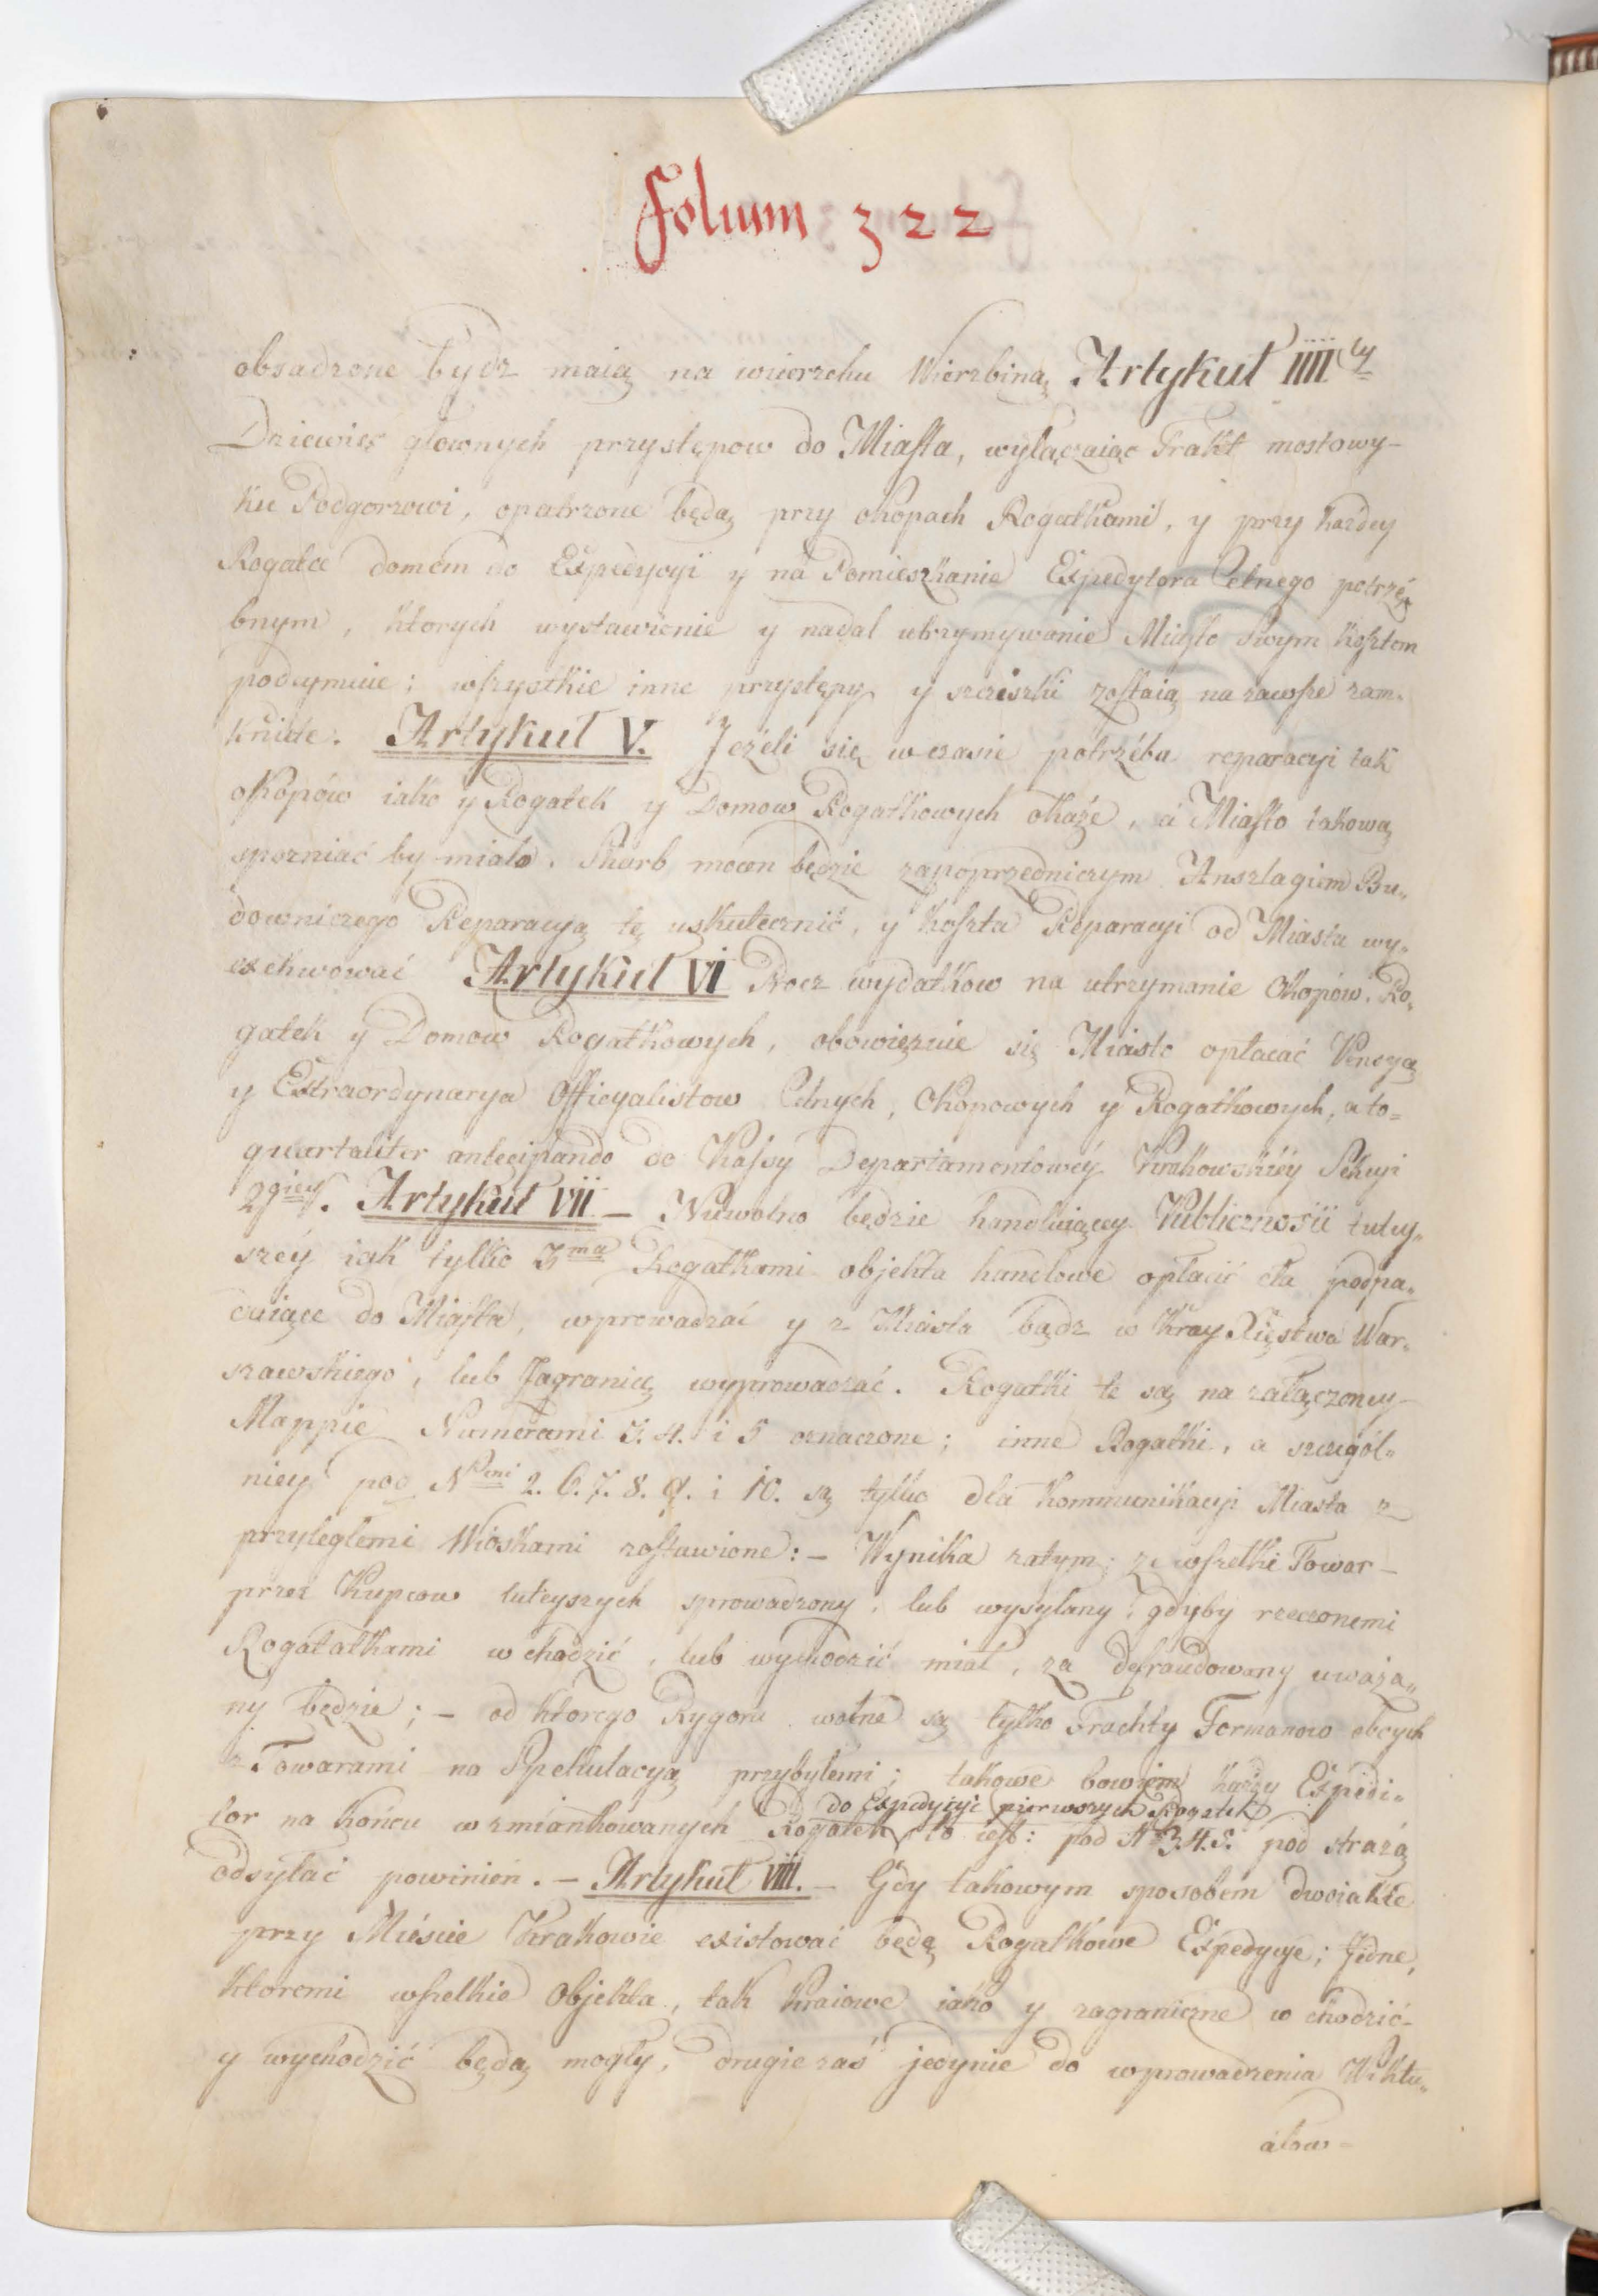 Folium 322
obsadzone bydz maią na wierzchu Wierzbiną Artykuł IIII ty
Dziewięć głownych przystępow do Miasta, wyłączaiąc Trakt mostowy-
ku Podgorzowi, opatrzone będą przy okopach Rogatkami, y przy każdey
Rogatce domem do Expedycyi y na Pomieszkanie Expedytora Celnego potrzé-
bnym, ktorych wystawienie y nadal utrzymywanie Miasto swym Kosztem
podeymuie; wszystkie inne przystępy y scieszki zostaią na zawsze zam-
knięte. Artykuł V. Jeżeli się w czasie potrzéba reparacyi tak
okopów iako y Rogatek y Domow Rogatkowych okaże, a Miasto takową
spozniać by miało. Skarb mocen będzie zapoprzedniczym Anszlagiem Bu„
downiczego Reparacyą tę uskutecznić, y koszta Reparacyi od Miasta wy„
exekwować Artykuł VI Procz wydatkow na utrzymanie Okopów, Ro„
gatek y Domow Rogatkowych, obowięzuie się Miasto opłacać Pensyą
y Extraordynarya Officyalistow Celnych, Okopowych y Rogatkowych, a to=
quartaliter antecipando do Kassy Departamentowéy Krakowskiéy Sekcyi
2giey. Artykuł VII – Niewolno będzie handluiącey Publicznosci tutey„
széy iak tylko 3ma Rogatkami objekta handlowe opłacie cła podpa„
daiące do Miasta, wprowadzać y z Miasta bądz w Kray Xięstwa War„
szawskiego, lub Zagranicę wyprowadzać. Rogatki te są na załączoney
Mappie Numerami 3. 4. i 5 oznaczone; inne Rogatki, a szczegól„
niey pod Nrmi 2. 6. 7. 8. 9. i 10. są tylko dla kommunikacyi Miasta z
przyległemi Wioskami zostawione: – Wynika zatym; ze wszelki Towar –
przez Kupcow tuteyszych sprowadzony, lub wysyłany, gdyby rzeczonemi
Rogatatkami wchodzić, lub wychodzić miał, za defraudowany uważa„
ny będzie; – od ktorego Rygoru wolne są tylko Frachty Formanow obcych
z Towarami na Spekulacyą przybyłemi; takowe bowiem każdy Expedi„
do Expedycyi pierwszych Rogatek
tor na końcu wzmiankowanych Rogatek to iest: pod N 3. 4. 5. pod strażą
odsyłać powinien. – Artykuł VIII. – Gdy takowym sposobem dwoiakie
przy Mieście Krakowie existować będę Rogatkowe Expedycye; Jedne,
ktoremi wszelkie Objekta, tak Kraiowe iako y zagraniczne wchodzić-
y wychodzić będą mogły, drugie zaś jedynie do wprowadzenia Wiktu„
ałow=